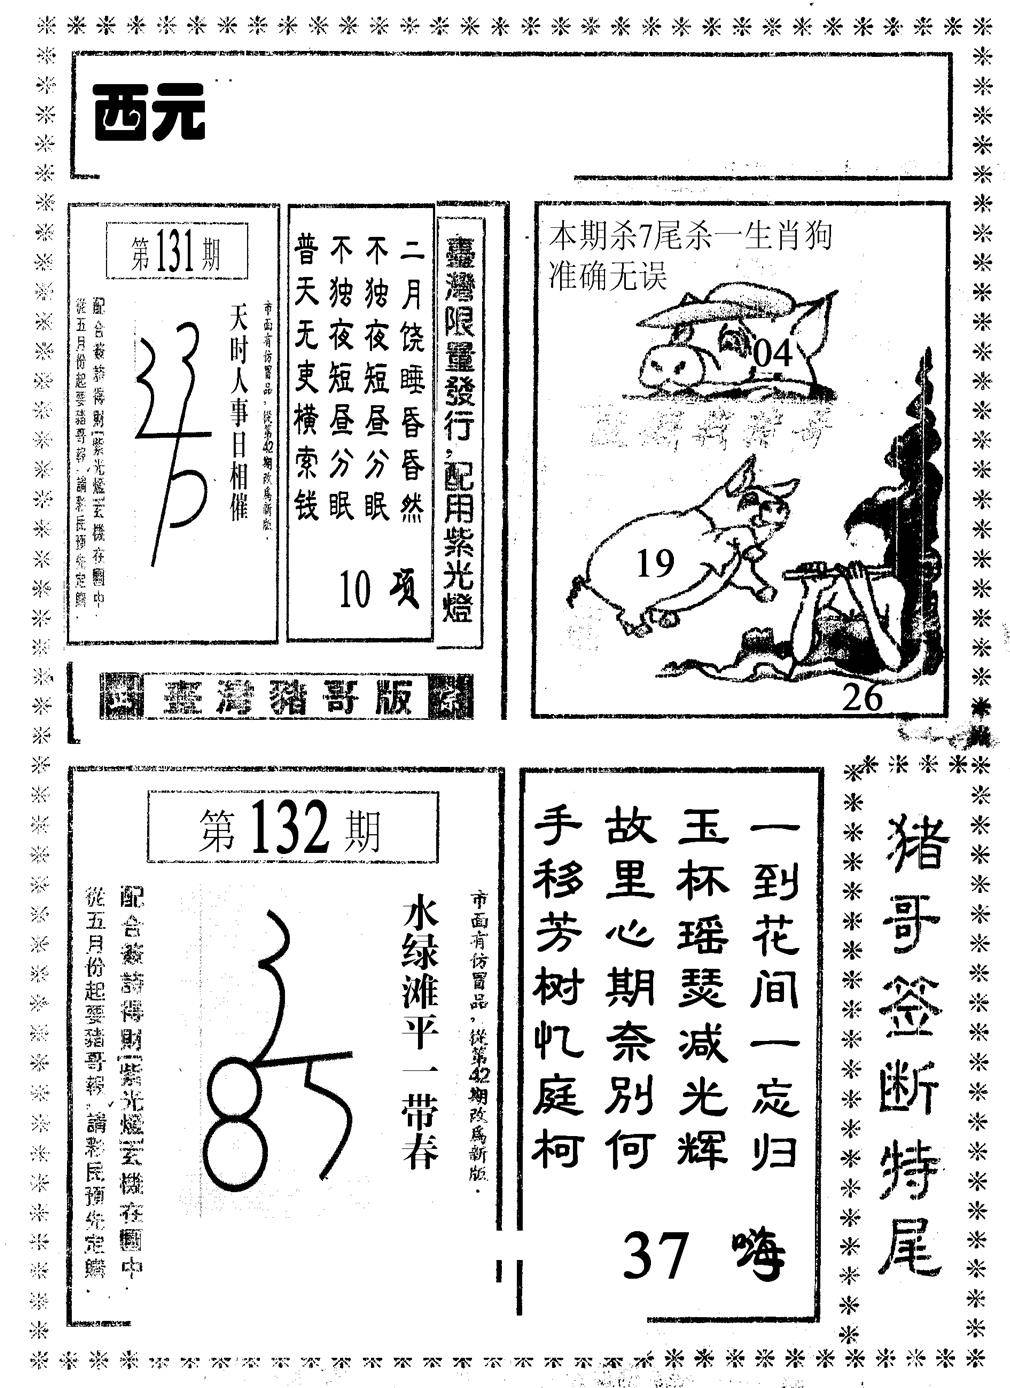 西元
第131期
市面有仿冒品，從第42期改為新版．
天时人事日相催
配合簽詩得財(紫光燈)玄機在圖中．
從五月份起要豬哥報，請彩民預先定購．
臺灣限量發行，配用紫光燈
二月饶睡昏昏然
不独夜短昼分眠
不独夜短昼分眠
普天无吏横索钱
10 项
臺灣豬哥版
本期杀7尾杀一生肖狗
准确无误
04
19
26
第132期
市面有仿冒品，從第42期改為新版．
水绿滩平一带春
配合簽詩得財(紫光燈)玄機在圖中．
從五月份起要豬哥報，請彩民預先定購．
一到花间一忘归
玉杯瑶瑟减光辉
故里心期奈别何
手移芳树忆庭柯
37 嗨
猪哥签断特尾